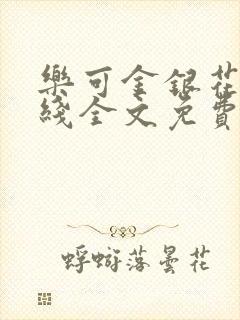 樂可金銀花
綫全文免費
蜉蝣落曇花